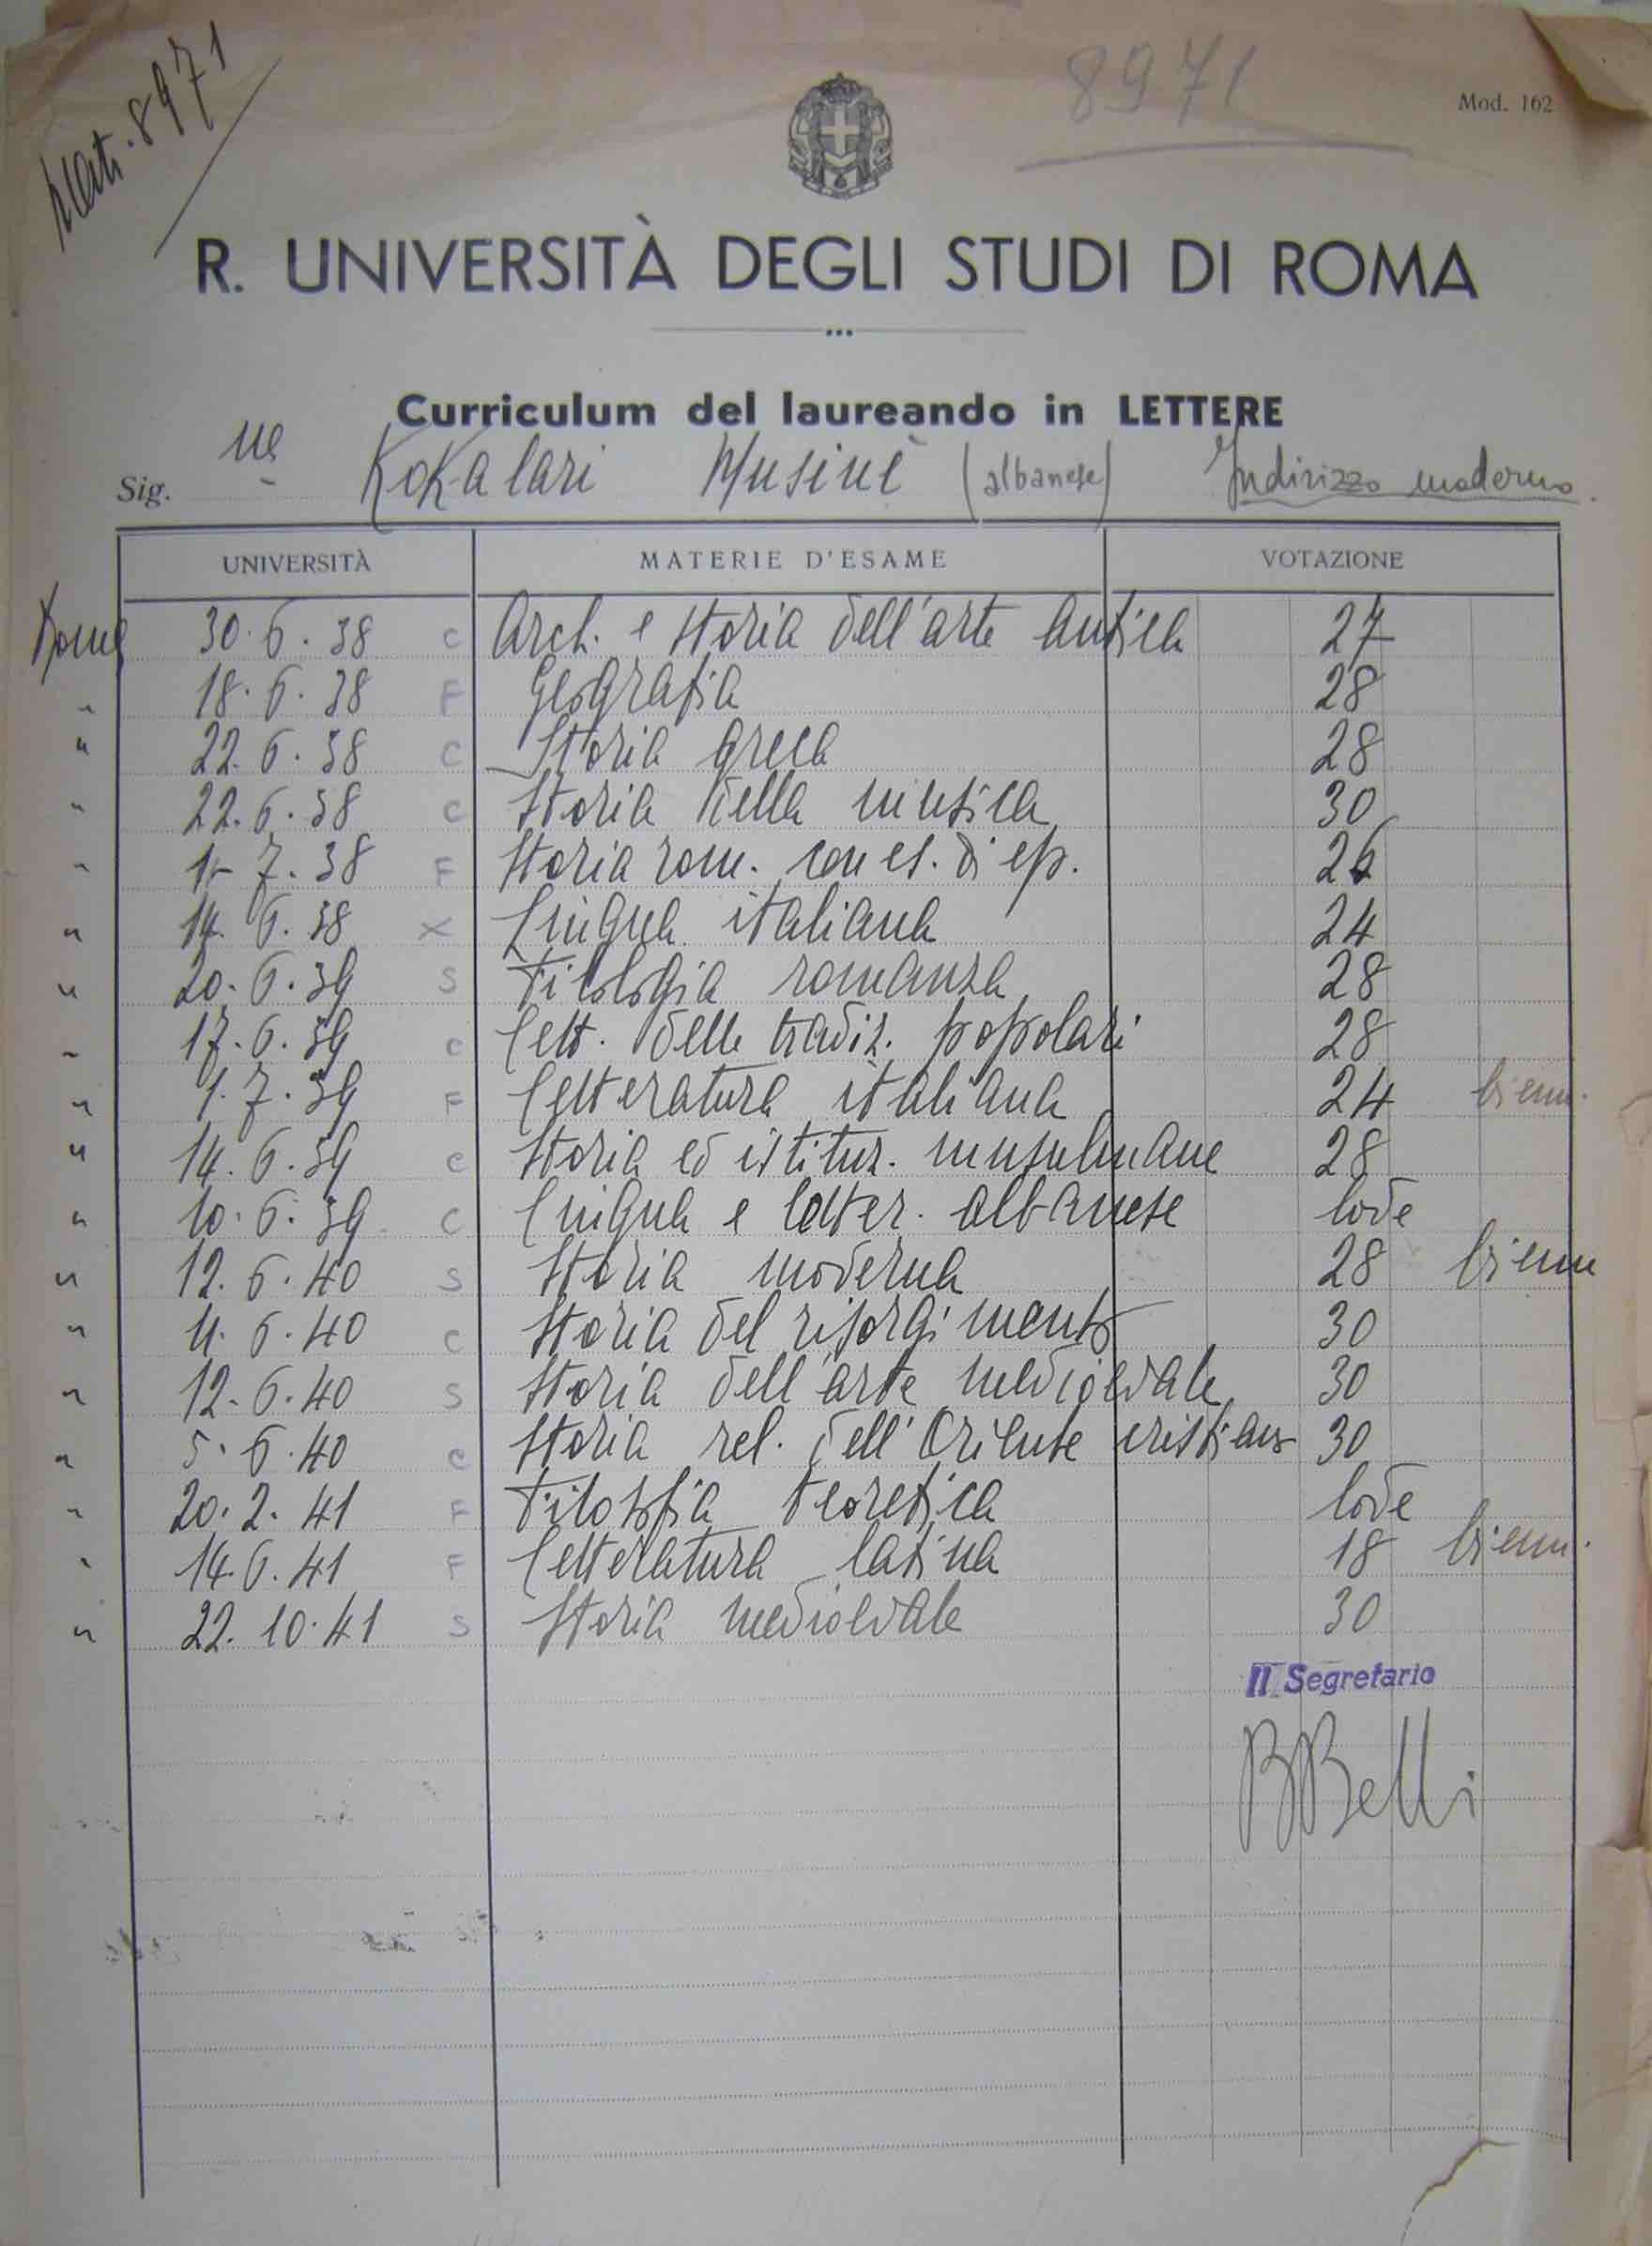 Matr. 8971
8971
Mod. 162
R. UNIVERSITÀ DEGLI STUDI DI ROMA
Curriculum del laureando in LETTERE
Sig. na Kokalari Musine (albanese) Indirizzo moderno
UNIVERSITÀ MATERIE D'ESAME VOTAZIONE
Roma 30.6.38 C Arch. e storia dell'arte antica 27
" 18.6.38 F Geografia 28
" 22.6.38 C Storia greca 28
" 22.6.38 C Storia della musica 30
" 7.38 F Storia rom. con es. di ep. 26
" 14.6.38 X Lingua italiana 24
" 20.6.39 S Filologia romanza 28
" 17.6.39 C Lett. delle tradiz. popolari 28
" 1.7.39 F Letteratura italiana 24 bienn.
" 14.6.39 C Storia ed istituz. musulmane 28
" 10.6.39 C Lingua e letter. albanese lode
" 12.6.40 S Storia moderna 28 bienn
" 11.6.40 C Storia del risorgimento 30
" 12.6.40 S Storia dell'arte medioevale 30
" 5.6.40 C Storia rel. dell'Oriente cristiano 30
" 20.2.41 F Filosofia teoretica lode
" 14.6.41 F Letteratura latina 18 bienn.
" 22.10.41 S Storia medioevale 30
Il Segretario
BBelli